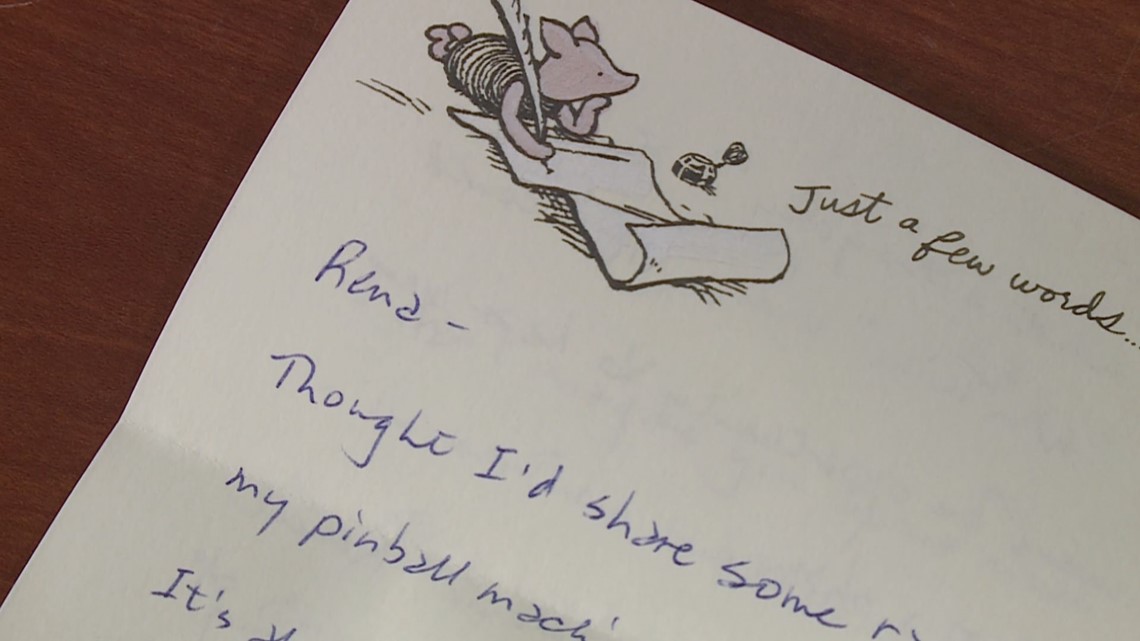 Just a few words...
Rena -
Thought I'd share some
my pinball
It's